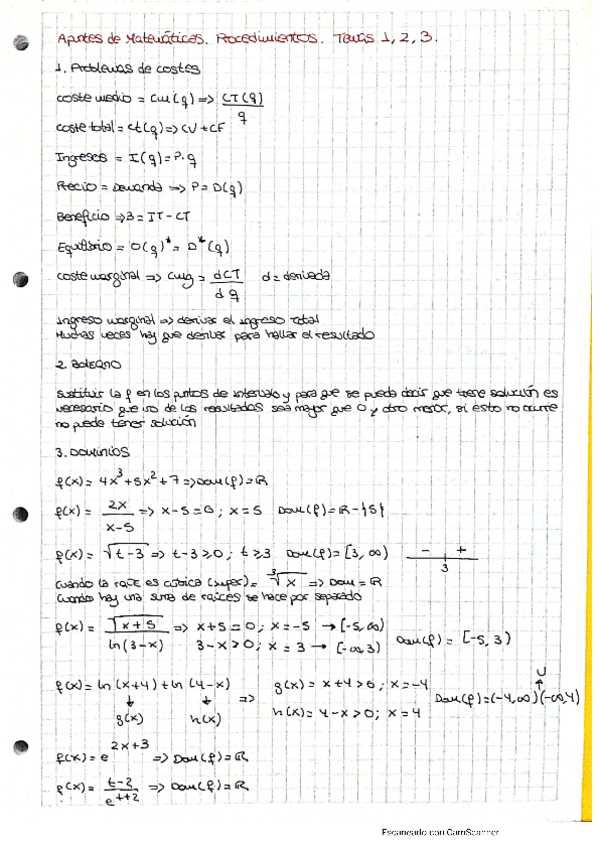 Apuntes de Matemáticas. Procedimientos. Temas 1, 2, 3.
1. Problemas de costes
coste medio = Cm(q) => CT(q)/q
coste total = Ct(q) => CV + CF
Ingresos = I(q) = P·q
Precio = Demanda => P = D(q)
Beneficio => B = IT - CT
Equilibrio = O(q)* = D*(q)
coste marginal => Cmg = dCT/dq d = derivada
Ingreso marginal => derivar el ingreso Total
Muchas veces hay que derivar para hallar el resultado
2. BOLZANO
sustituir la f en los puntos de intervalo y para que se pueda decir que tiene solución es
necesario que uno de los resultados sea mayor que 0 y otro menor, si esto no ocurre
no puede tener solución
3. DOMINIOS
f(x) = 4x³ + 5x² + 7 => Dom(f) = R
f(x) = 2x/(x-5) => x-5 = 0; x = 5 Dom(f) = R - {5}
f(x) = √(t-3) => t-3 ≥ 0; t ≥ 3 Dom(f) = [3, ∞) - + 3
cuando la raíz es cúbica (impar) = ³√x => Dom = R
Cuando hay una suma de raíces se hace por separado
f(x) = √(x+5)/ln(3-x) => x+5 = 0; x = -5 → [-5, ∞)
3-x > 0; x = 3 → (-∞, 3) Dom(f) = [-5, 3)
f(x) = ln(x+4) + ln(4-x) => g(x) = x+4 > 0; x = -4
g(x) h(x) h(x) = 4-x > 0; x = 4 Dom(f) = (-4, ∞) (-∞, 4) U
f(x) = e^(2x+3) => Dom(f) = R
f(x) = (t-2)/e^(t+2) => Dom(f) = R
Escaneado con CamScanner